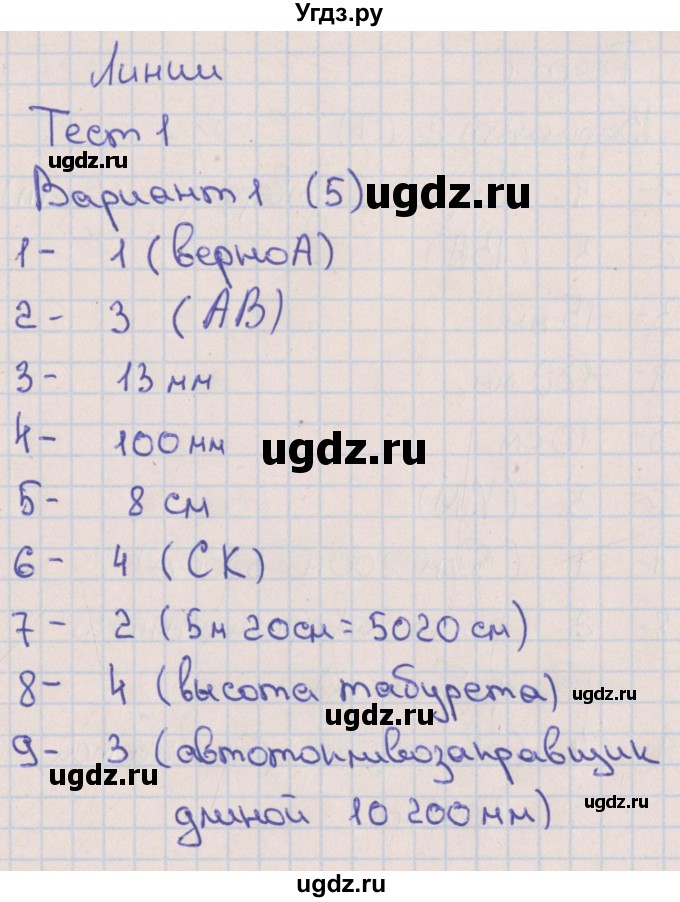 Угдз.ру
Линии
Тест 1
ugdz.ru
Вариант 1 (5) ugdz.ru
1 - 1 (верно А)
2 - 3 (АВ)
3 - 13 мм
4 - 100 мм ugdz.ru
5 - 8 см
6 - 4 (СК)
7 - 2 (5м 20см = 5020 см)
8 - 4 (высота табурета) ugdz.ru
ugdz.ru
9 - 3 (автотопливозаправщик
ugdz.ru
длиной 10 200 мм) ugdz.ru
ugdz.ru